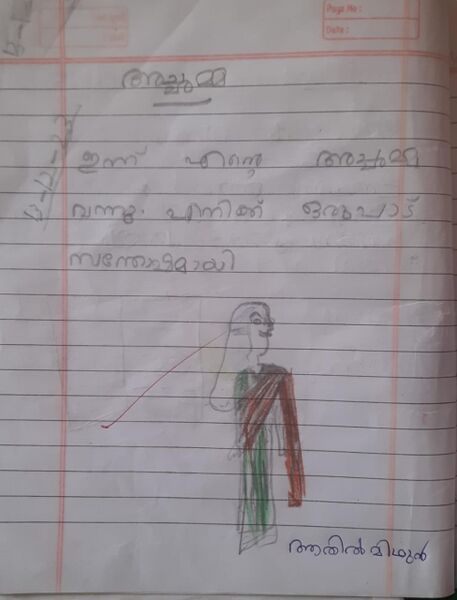 Page No :
Date :
അച്ചമ്മ
ഇന്ന് എന്റെ അച്ചമ്മ
വന്നു. എനിക്ക് ഒരുപാട്
സന്തോഷമായി
ആതിൽ മിഥുൻ